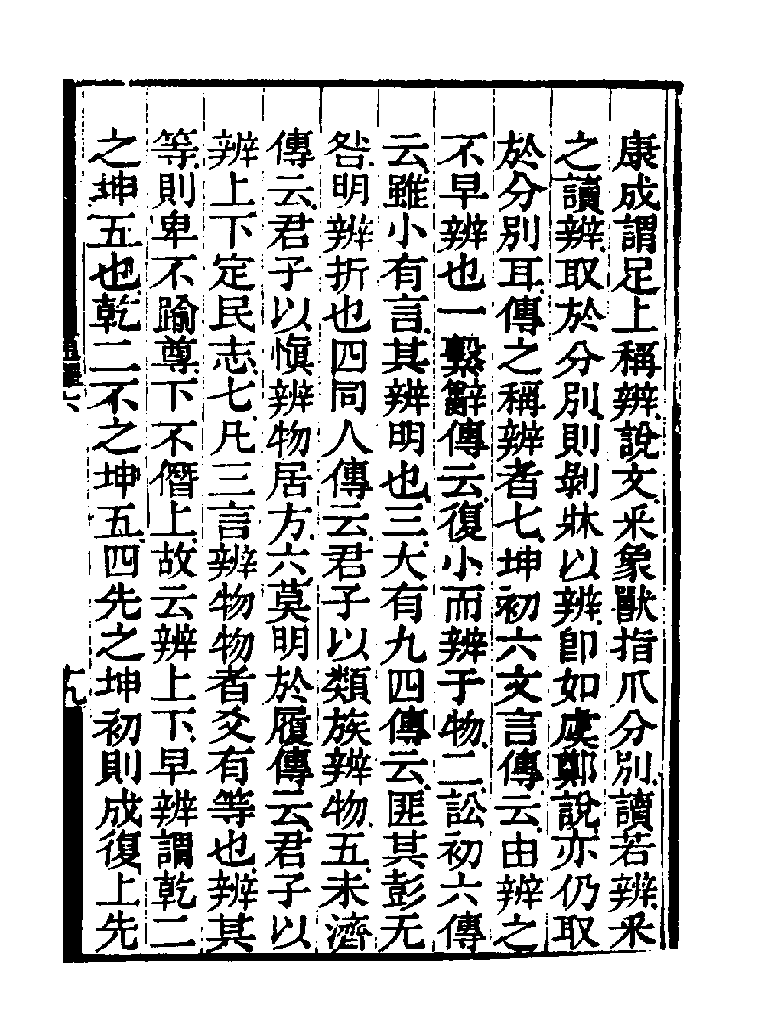 康成謂足上稱辨說文釆象獸指爪分別讀若辨釆
之讀辨取於分別則剝牀以辨卽如虞鄭說亦仍取
於分別耳傳之稱辨者七坤初六文言傳云由辨之
不早辨也一繫辭傳云復小而辨于物二訟初六傳
云雖小有言其辨明也三大有九四傳云匪其彭无
咎明辨折也四同人傳云君子以類族辨物五未濟
傳云君子以慎辨物居方六莫明於履傳云君子以
辨上下定民志七凡三言辨物物者爻有等也辨其
等則卑不踰尊下不僭上故云辨上下早辨謂乾二
之坤五也乾二不之坤五四先之坤初則成復上先
通釋六
十九